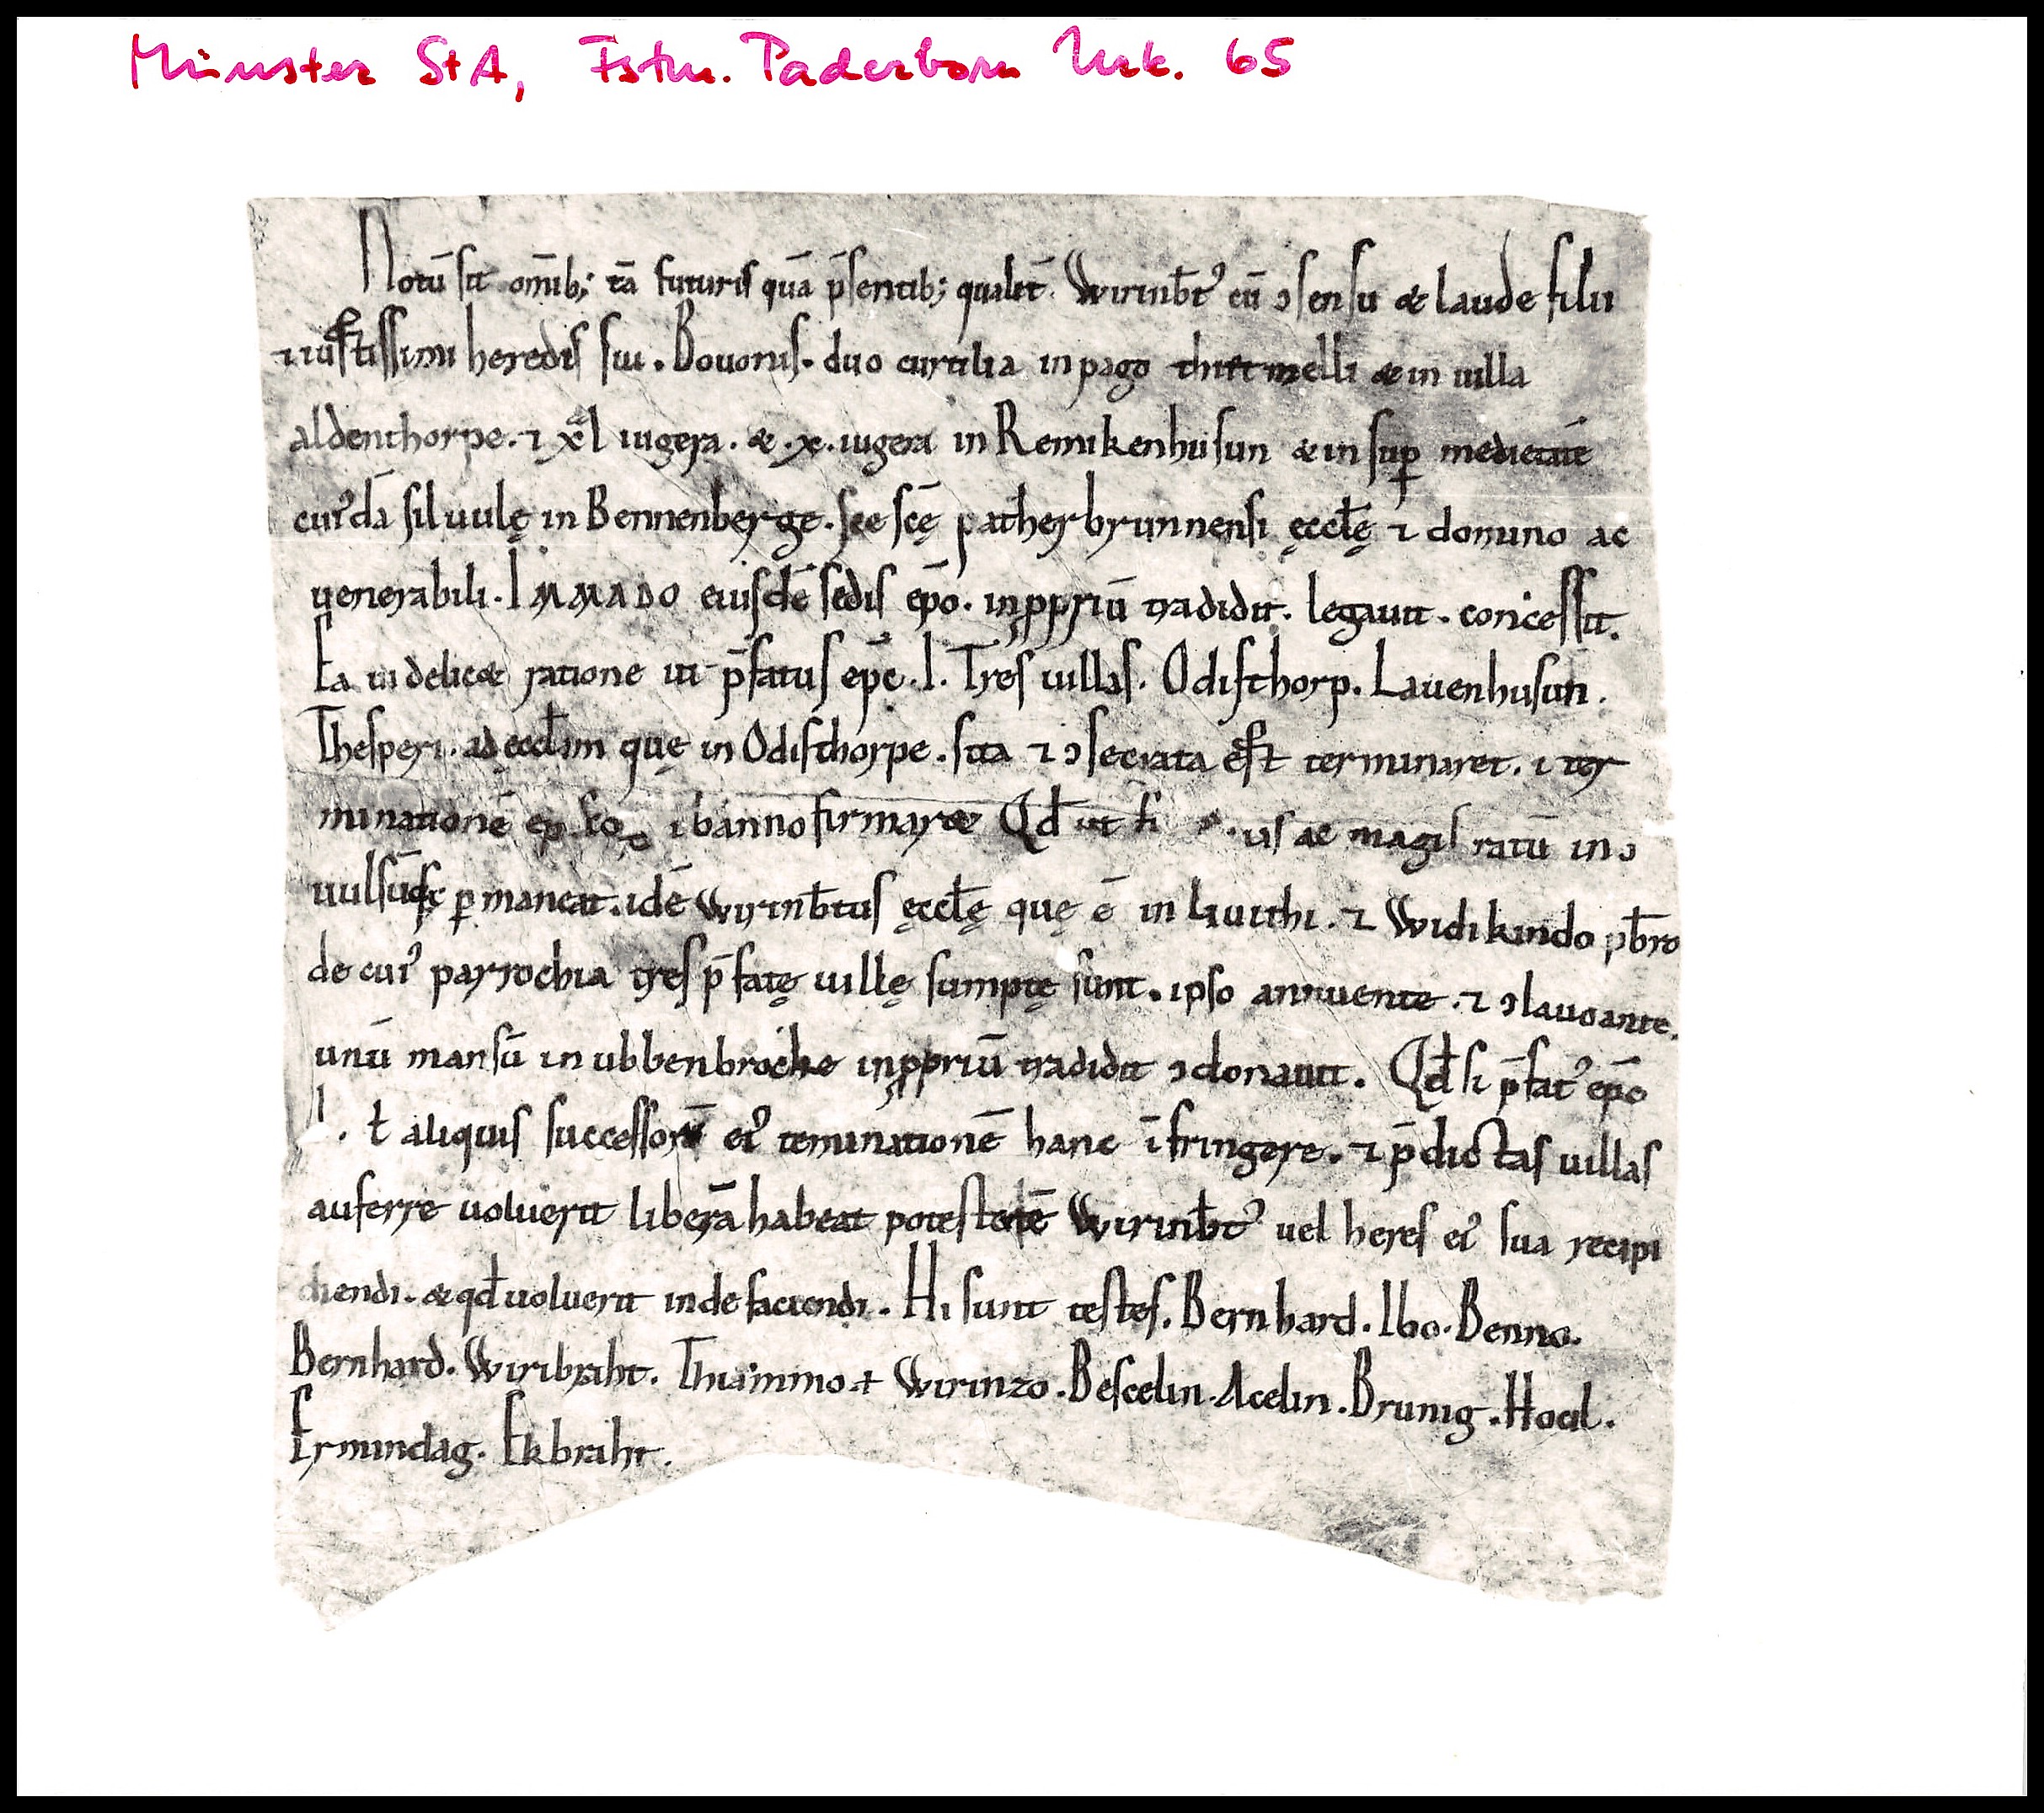 Münster StA, Fstm. Paderborn Urk. 65
Notū sit om̄ib; tā futuris quā p̄sentib; qualit̄. Wirinb̄tꝰ cū ꝯsensu & laude filii
⁊ iustissimi heredis sui. Bovonis. duo curtilia in pago thietmelli & in uilla
aldenthorpe. ⁊ xl iugera. & .x. iugera in Remikenhusun & in suꝑ medietatē
cuiꝰdā siluulę in Bennenberge. scē patherbrunnensi ęccl̄ę ⁊ domino ac
uenerabili. IMMADO eiusdē sedis ep̄o. in ꝓpriū tradidit. legauit. concessit.
Ea uidelic& ratione ut p̄fatus ep̄c. I. Tres uillas. Odisthorp. Lauenhusun.
Thesperi. ad ęccl̄im quę in Odisthorpe. sita ⁊ ꝯsecrata est terminaret. ⁊ ter
minationē banno firmar& Qd̄ ut ac magis ratū in ꝯ
uulsūq; ꝑmaneat. idē Wirinb̄tus ęccl̄ę quę ē in liuithi. ⁊ Widikindo pb̄ro
de cuiꝰ parrochia tres p̄fatę uillę sumptę sunt. ipso annuente. ⁊ ꝯlauoante.
unū mansū in ubbenbroche in ꝓpriū tradidit ꝯdonauit. Qd̄ si p̄fatꝰ ep̄c
I. ł aliquis successorū eiꝰ teminationē hanc īfringere. ⁊ p̄dictas uillas
auferre uoluerit liberā habeat potestatē Wirinb̄tꝰ uel heres eiꝰ sua recipi
endi. & qd̄ uoluerit inde faciendi. Hi sunt testes. Bernhard. Ibo. Benno.
Bernhard. Wiribraht. Thiammo. + Wirinzo. Bescelin. Acelin. Brunig. Hocil.
Ermindag. Ekbraht.